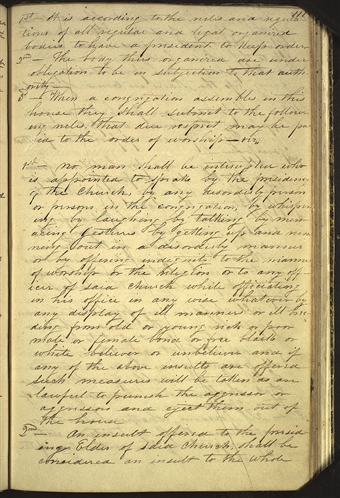 111
1st It is according to the rules and regula
tions of all regular and legal organized
bodies to have a president to keep order
2nd — The body thus organized are under
obligation to be in subjection to that auth
ority
3d — When a congregation assembles in this
house they shall submit to the follow
ing rules, that due respect may be pa
id to the order of worship — viz
1st — no man shall be interrupted who
is appointed to speak by the presidency
of the Church, by any disorderly person
or persons in the congregation, by whisper
ing by laughing by talking by men
acing Gestures by getting up and run
ning out in a disorderly manner
or by offering indignity to the manner
of worship or the religion or to any off
icer of said church while officiating
in his office in any wise whatsoever by
any display of ill manners or ill bree
ding from old or young rich or poor
male or female bond or free black or
white believer or unbeliever and if
any of the above insults are offered
such measures will be taken as are
lawful to punish the aggressor or
aggressors and eject them out of
the house
2nd — An insult offered to the presid
ing Elder of said Church, shall be
considered an insult to the whole